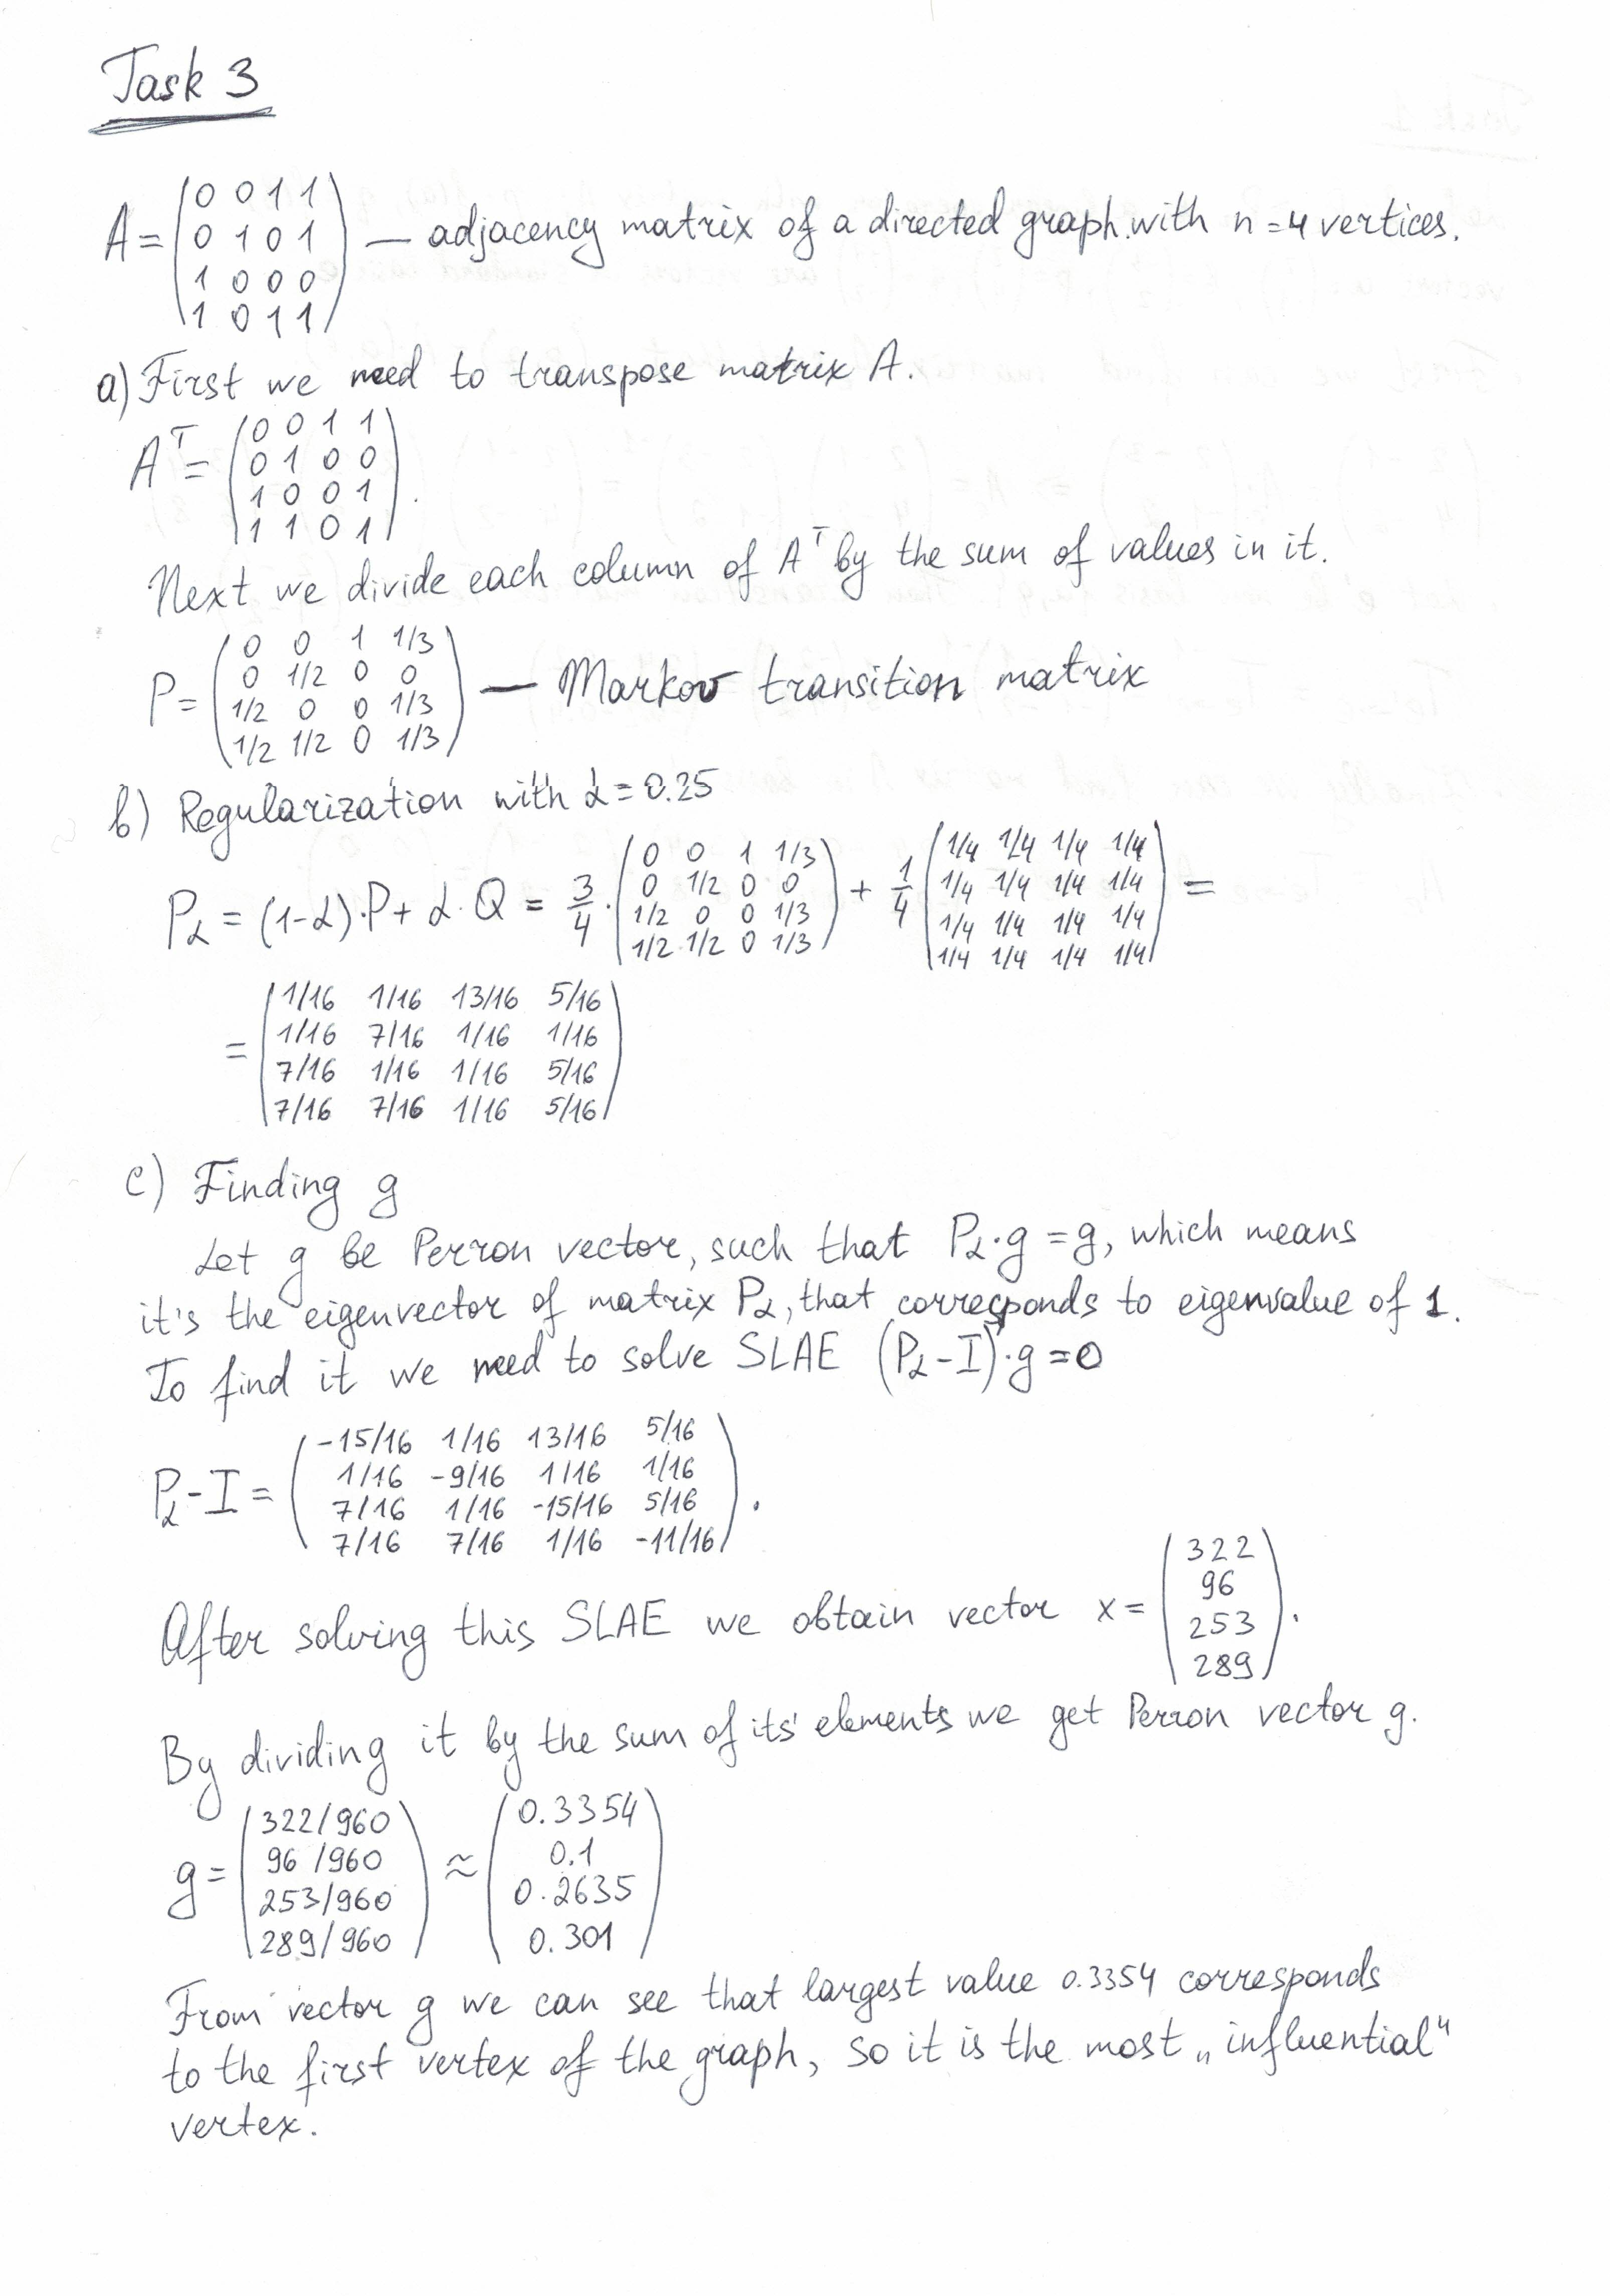 Task 3
A = (0 0 1 1
0 1 0 1
1 0 0 0
1 0 1 1) — adjacency matrix of a directed graph with n = 4 vertices.
a) First we need to transpose matrix A.
Aᵀ = (0 0 1 1
0 1 0 0
1 0 0 1
1 1 0 1).
Next we divide each column of Aᵀ by the sum of values in it.
P = (0 0 1 1/3
0 1/2 0 0
1/2 0 0 1/3
1/2 1/2 0 1/3) — Markov transition matrix
b) Regularization with α = 0.25
Pα = (1-α)·P + α·Q = 3/4 · (0 0 1 1/3
0 1/2 0 0
1/2 0 0 1/3
1/2 1/2 0 1/3) + 1/4 (1/4 1/4 1/4 1/4
1/4 1/4 1/4 1/4
1/4 1/4 1/4 1/4
1/4 1/4 1/4 1/4) =
= (1/16 1/16 13/16 5/16
1/16 7/16 1/16 1/16
7/16 1/16 1/16 5/16
7/16 7/16 1/16 5/16)
c) Finding g
Let g be Perron vector, such that Pα·g = g, which means
it's the eigenvector of matrix Pα, that corresponds to eigenvalue of 1.
To find it we need to solve SLAE (Pα-I)·g = 0
Pα-I = (-15/16 1/16 13/16 5/16
1/16 -9/16 1/16 1/16
7/16 1/16 -15/16 5/16
7/16 7/16 1/16 -11/16).
After solving this SLAE we obtain vector x = (322
96
253
289).
By dividing it by the sum of its' elements we get Perron vector g.
g = (322/960
96/960
253/960
289/960) ≈ (0.3354
0.1
0.2635
0.301)
From vector g we can see that largest value 0.3354 corresponds
to the first vertex of the graph, so it is the most „influential"
vertex.